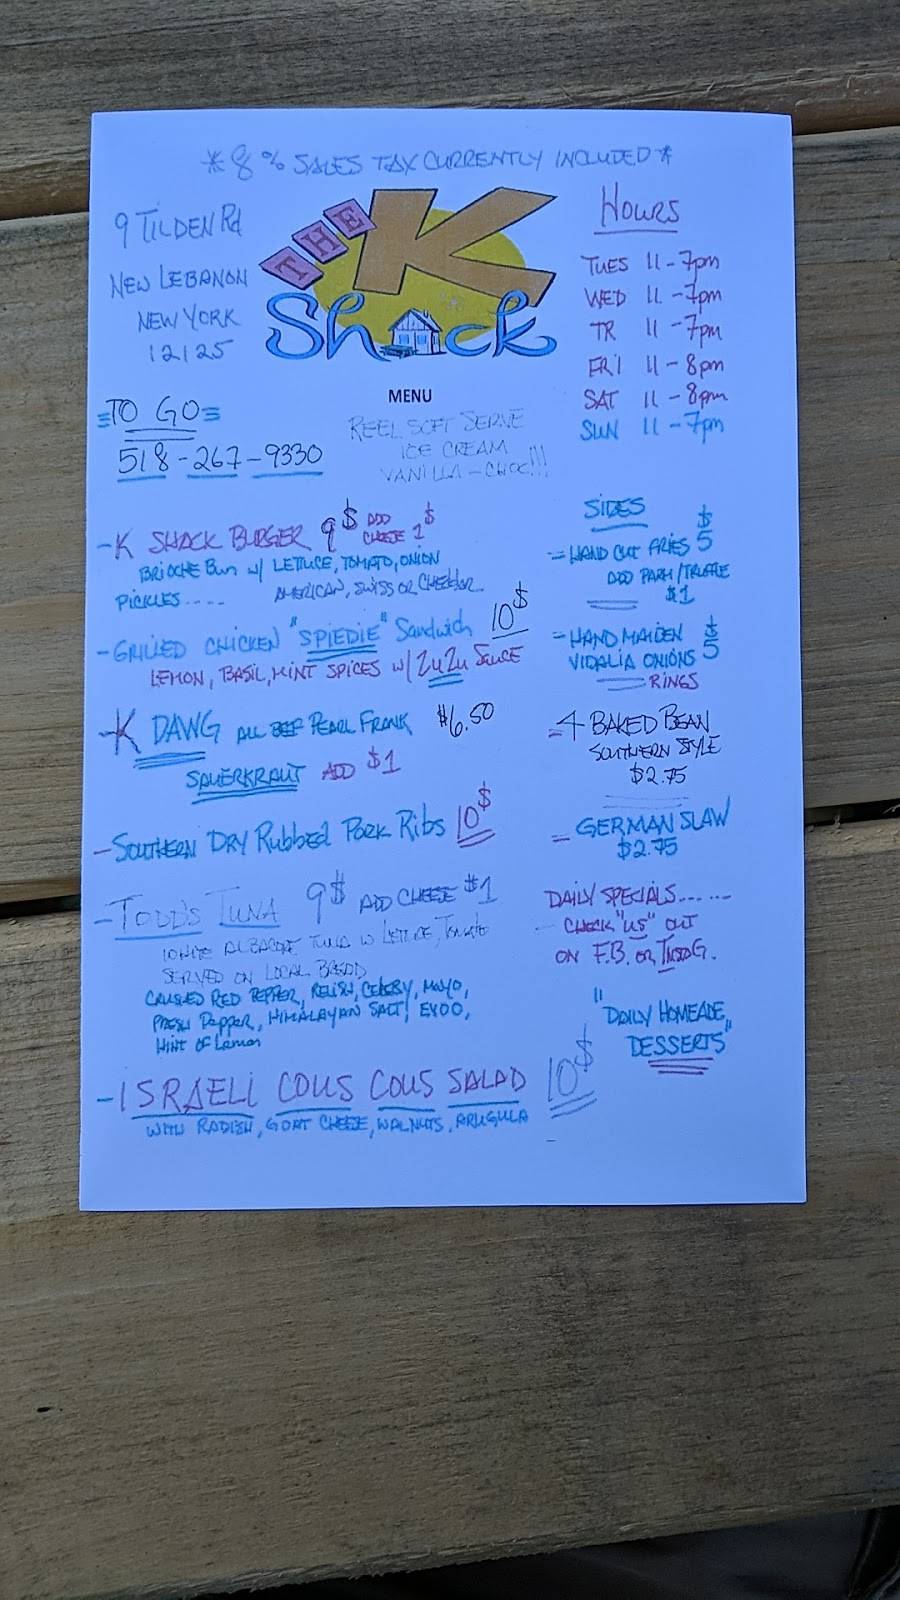 * 8 % SALES TAX CURRENTLY INCLUDED *
9 TILDEN Rd
NEW LEBANON
NEW YORK
12125
THE K Shack
HOURS
TUES 11 - 7pm
WED 11 - 7pm
TR 11 - 7pm
FRI 11 - 8pm
SAT 11 - 8pm
SUN 11 - 7pm
TO GO
518-267-9330
MENU
REEL SOFT SERVE
ICE CREAM
VANILLA - CHOC!!!
- K SHACK BURGER 9$ ADD CHEESE 1$
BRIOCHE BUN w/ LETTUCE, TOMATO, ONION
PICKLES.... AMERICAN, SWISS OR CHEDDAR
- GRILLED CHICKEN "SPIEDIE" Sandwich 10$
LEMON, BASIL, MINT SPICES w/ ZuZu SAUCE
- K DAWG ALL BEEF PEARL FRANK $6.50
SAUERKRAUT ADD $1
- SOUTHERN DRY RUBBED PORK RIBS 10$
- TODD'S TUNA 9$ ADD CHEESE $1
WHITE ALBACORE TUNA W LETTUCE, TOMATO
SERVED ON LOCAL BREAD
CRUSHED RED PEPPER, RELISH, CELERY, MAYO,
FRESH PEPPER, HIMALAYAN SALT, EVOO,
HINT OF Lemon
- ISRAELI COUS COUS SALAD 10$
WITH RADISH, GOAT CHEESE, WALNUTS, ARUGULA
SIDES
= HAND CUT FRIES $5
ADD PARM/TRUFFLE
$1
= HAND MAIDEN $5
VIDALIA ONIONS
RINGS
= 4 BAKED BEAN
SOUTHERN STYLE
$2.75
= GERMAN SLAW
$2.75
DAILY SPECIALS.......
- CHECK "US" OUT
ON F.B. OR
"DAILY HOMEADE
DESSERTS"